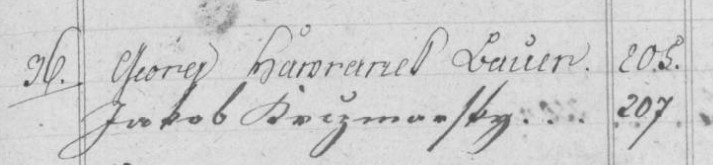 36. Georg Hawranek Bauer. 205.
Jakob Kruzmarsky. . . 207